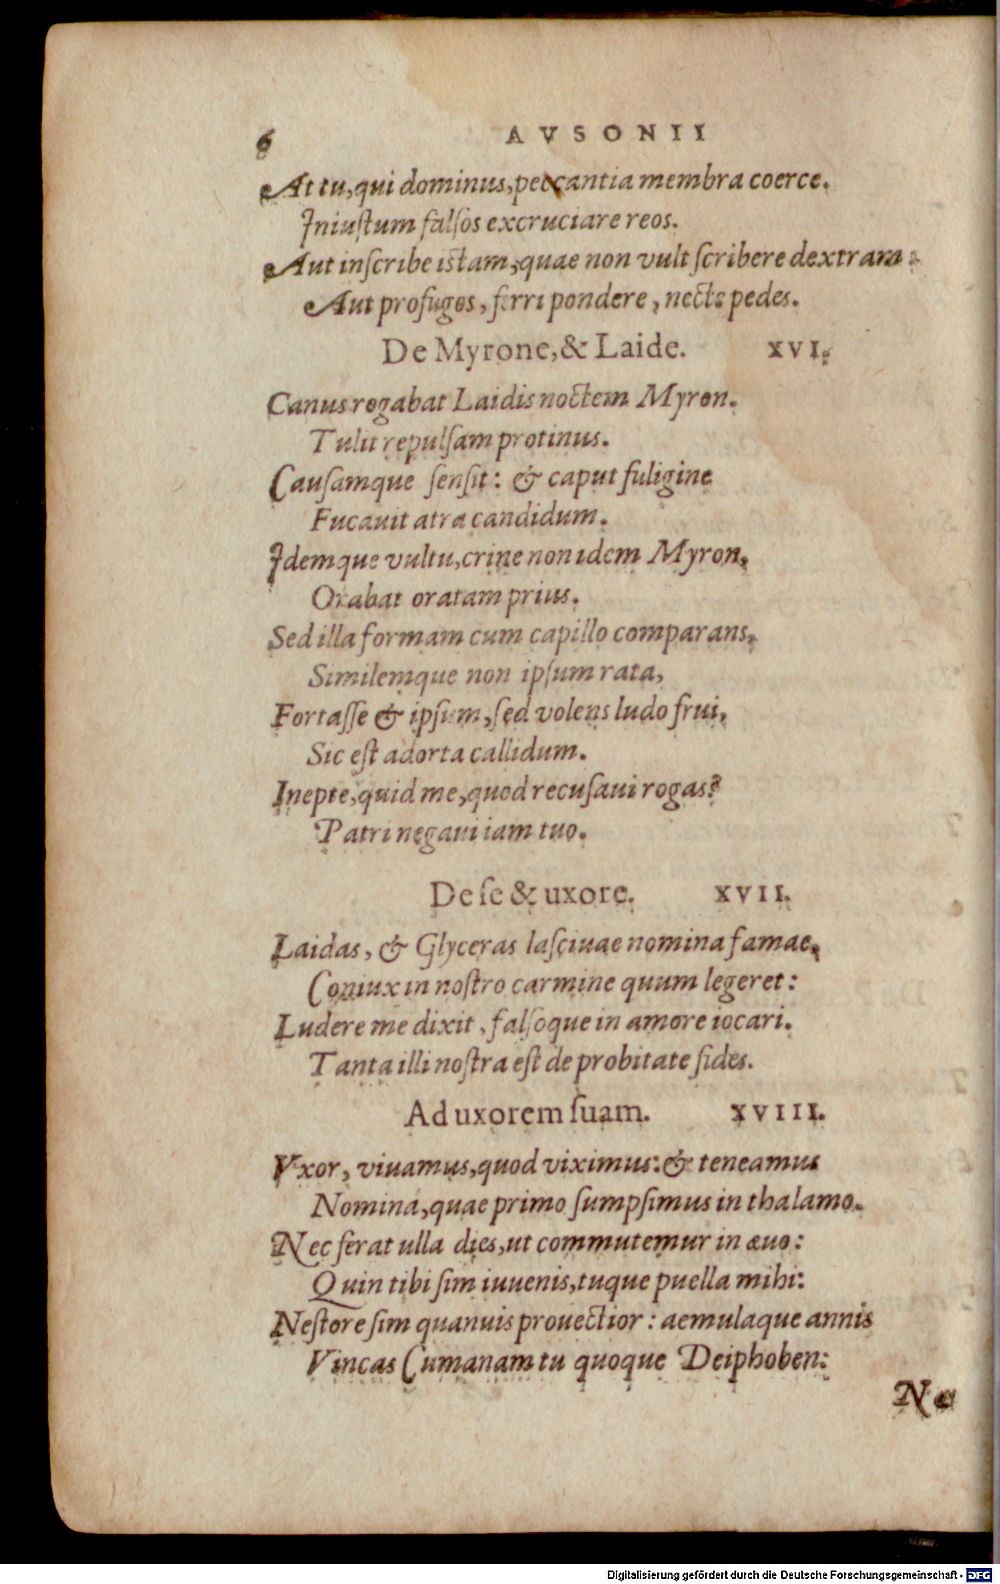 6 AVSONII
At tu, qui dominus, peccantia membra coerce.
Iniuſtum falſos excruciare reos.
Aut inſcribe iſtam, quae non vult ſcribere dextram:
Aut profugos, ferri pondere, necte pedes.
De Myrone, & Laide. XVI.
Canus rogabat Laidis noctem Myron.
Tulit repulſam protinus.
Cauſamque ſenſit: & caput fuligine
Fucauit atra candidum.
Idemque vultu, crine non idem Myron,
Orabat oratam prius.
Sed illa formam cum capillo comparans,
Similemque non ipſum rata,
Fortaſſe & ipſum, ſed volens ludo frui,
Sic eſt adorta callidum.
Inepte, quid me, quod recuſaui rogas?
Patri negaui iam tuo.
De ſe & uxore. XVII.
Laidas, & Glyceras laſciuae nomina famae,
Coniux in noſtro carmine quum legeret:
Ludere me dixit, falſoque in amore iocari.
Tanta illi noſtra eſt de probitate fides.
Ad uxorem ſuam. XVIII.
Vxor, viuamus, quod viximus: & teneamus
Nomina, quae primo ſumpſimus in thalamo.
Nec ferat ulla dies, ut commutemur in æuo:
Quin tibi ſim iuuenis, tuque puella mihi:
Neſtore ſim quanuis prouectior: aemulaque annis
Vincas Cumanam tu quoque Deiphoben:
Ne
Digitalisierung gefördert durch die Deutsche Forschungsgemeinschaft - DFG